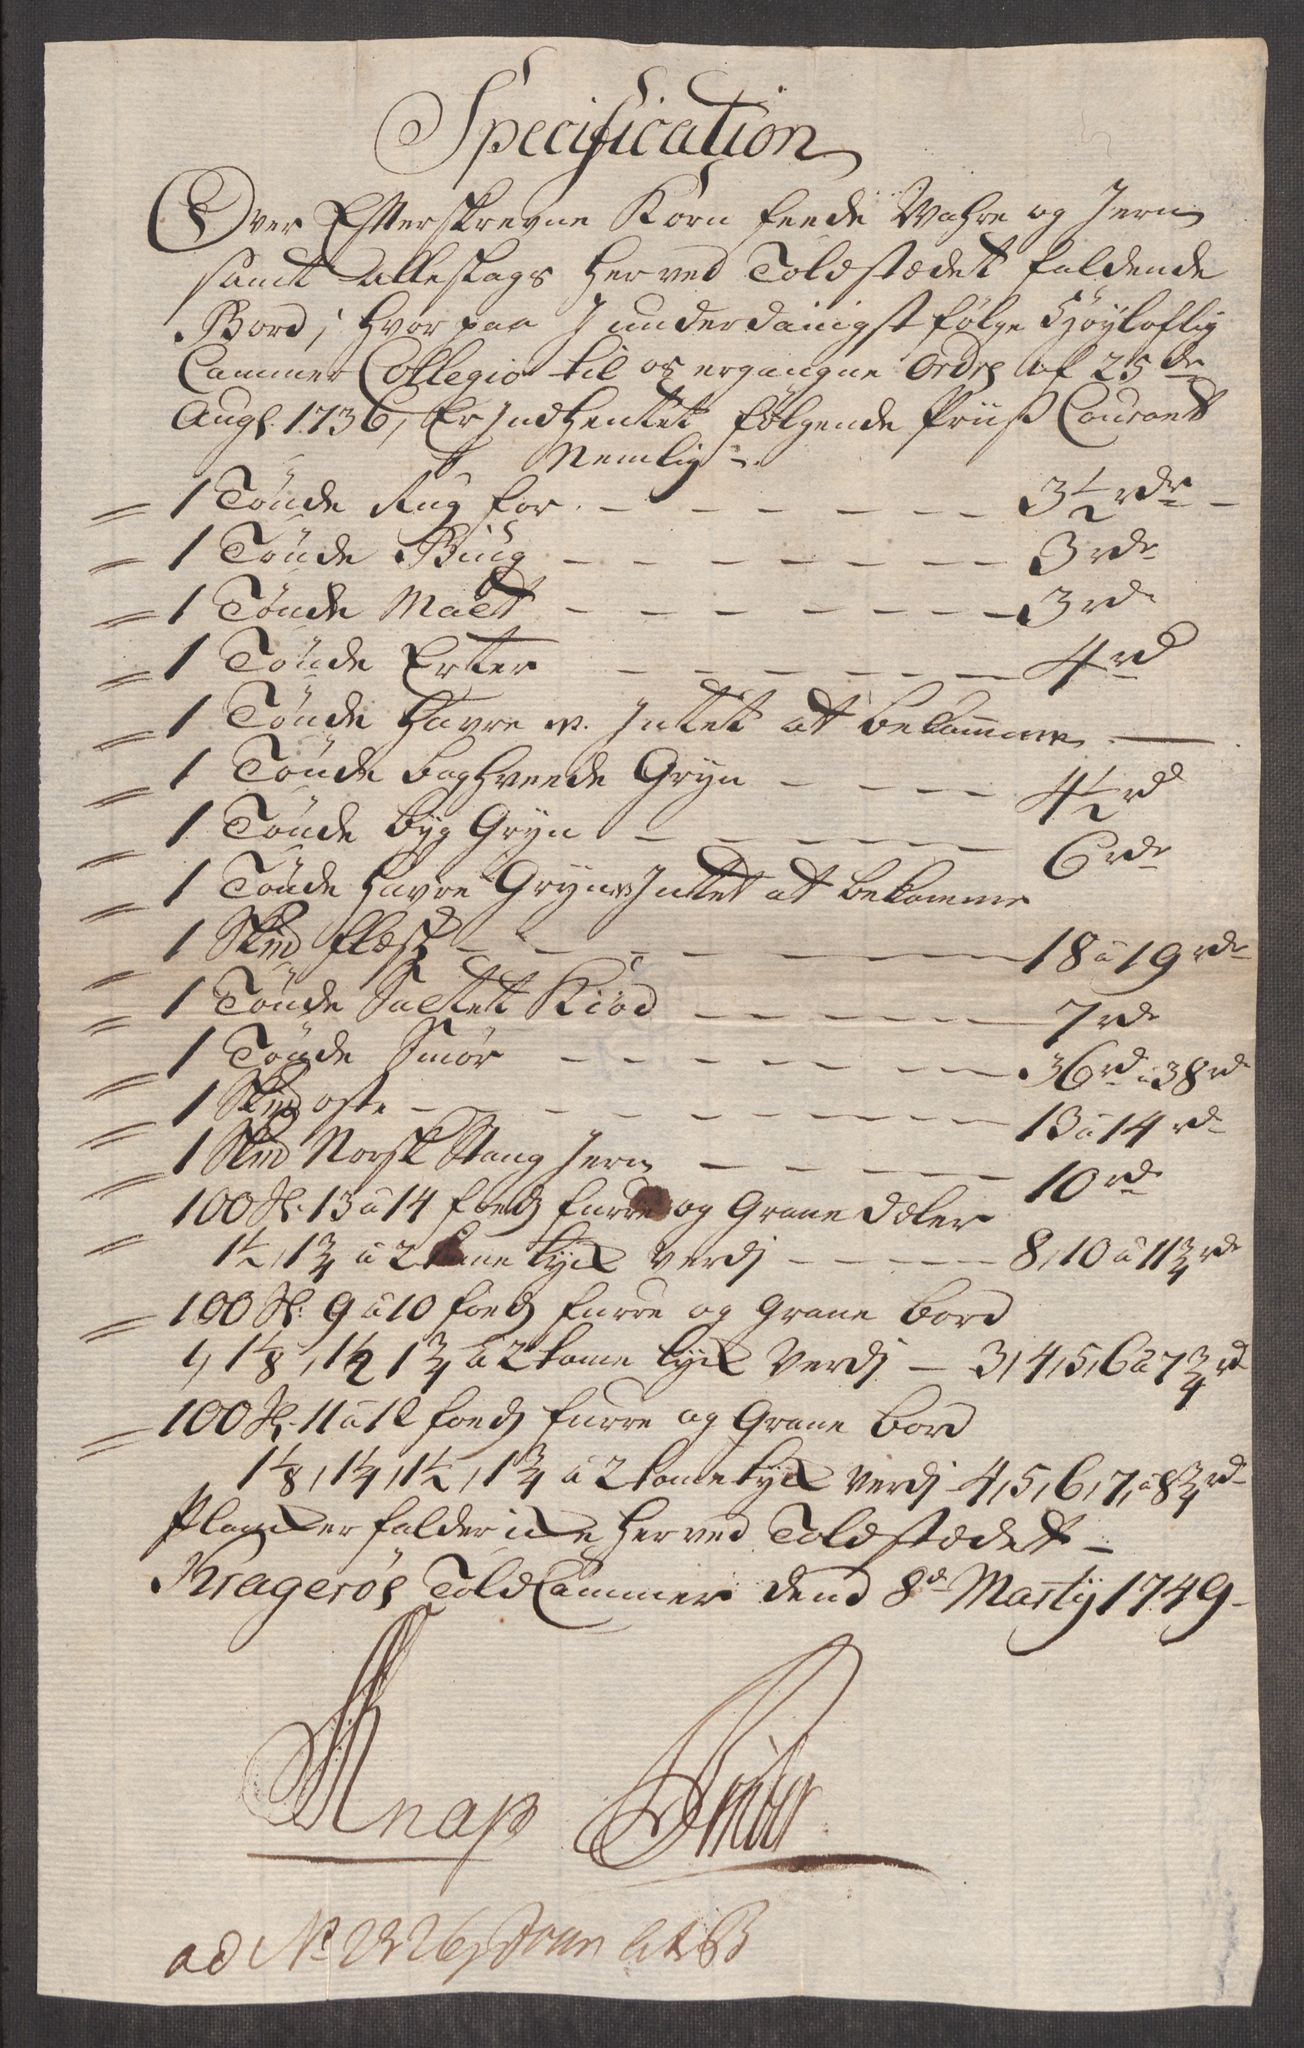 Specification
Over Efterskrevne Korn feede Wahre og Jern
samt alleslags her ved Toldstædet faldende
Bord, hvor paa J underdanigst følge Høyloflig
Cammer Collegio til os ergangne Ordre af 25de
Augs. 1736, Er Indhentet følgende Priiss Courant
Nemlig
1 Tønde Rug for - - - - - 3½ rdr
1 Tønde Biug - - - - - 3 rdr
1 Tønde Malt - - - - - 3 rd
1 Tønde Erter - - - - - 4 rd
1 Tønde Havre er Intet at bekomme
1 Tønde boghveede Gryn - - - - 4½ rd
1 Tønde byg Gryn - - - - - 6 rdr
1 Tønde Havre Gryn Intet at bekomme
1 Skƀ flæsk - - - - - 18 a 19 rdr
1 Tønde Saltet Kiød - - - - 7 rdr
1 Tønde Smør - - - - - 36 rd a 38 rd
1 Skƀ oste - - - - - 13 a 14 rd
1 Skƀ Norsk Stang Jern - - - - 10 rdr
100 St. 13 a 14 foeds furre og Grane Dæler
1½, 1¾ a 2 tome tyck verdj - - - - 8, 10 a 11¾ rdr
100 St. 9 a 10 foeds furre og Grane bord
1, 1⅛, 1½ 1¾ a 2 tome tyck verdj - 3, 4, 5, 6 a 7¾ rd
100 St. 11 a 12 foeds furre og Grane bord
1⅛, 1¼, 1½, 1¾ a 2 tome tyck verdj 4, 5, 6, 7, a 8¾ rd
Plancker falder icke her ved Toldstædet
Kragerøe Told Cammer dend 8d Martij 1749
Knap
ad No 2226,